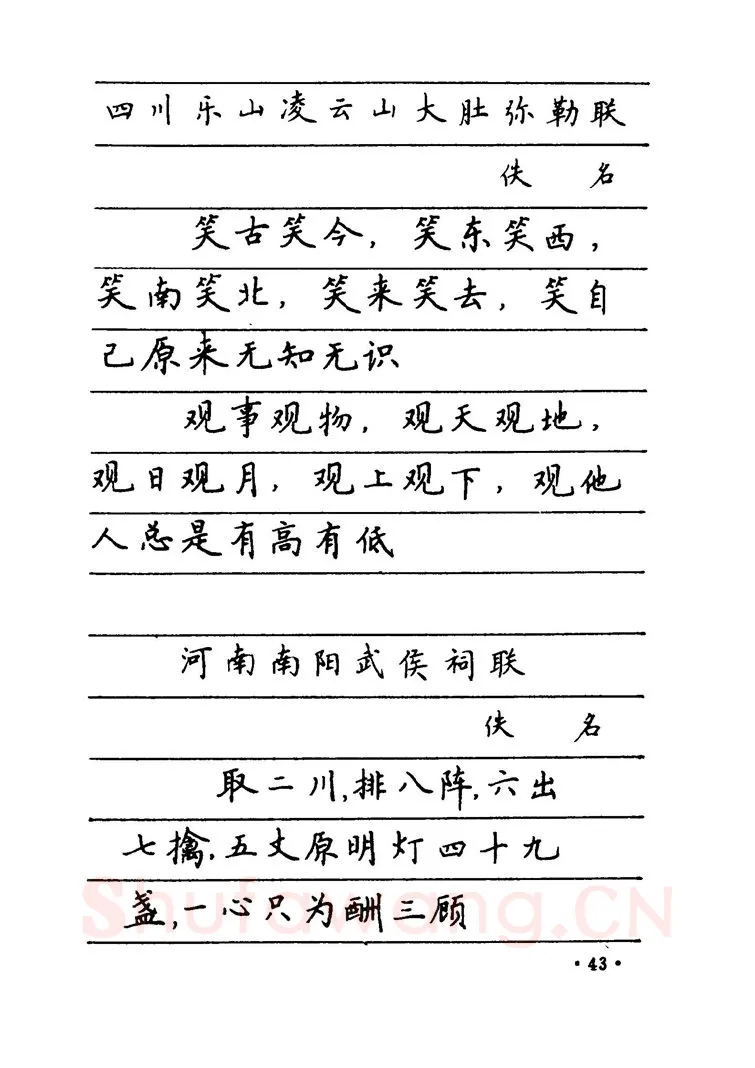 四川乐山凌云山大肚弥勒联
佚 名
笑古笑今，笑东笑西，
笑南笑北，笑来笑去，笑自
己原来无知无识
观事观物，观天观地，
观日观月，观上观下，观他
人总是有高有低
河南南阳武侯祠联
佚 名
取二川，排八阵，六出
七擒，五丈原明灯四十九
盏，一心只为酬三顾
Shufawang.CN
·43·